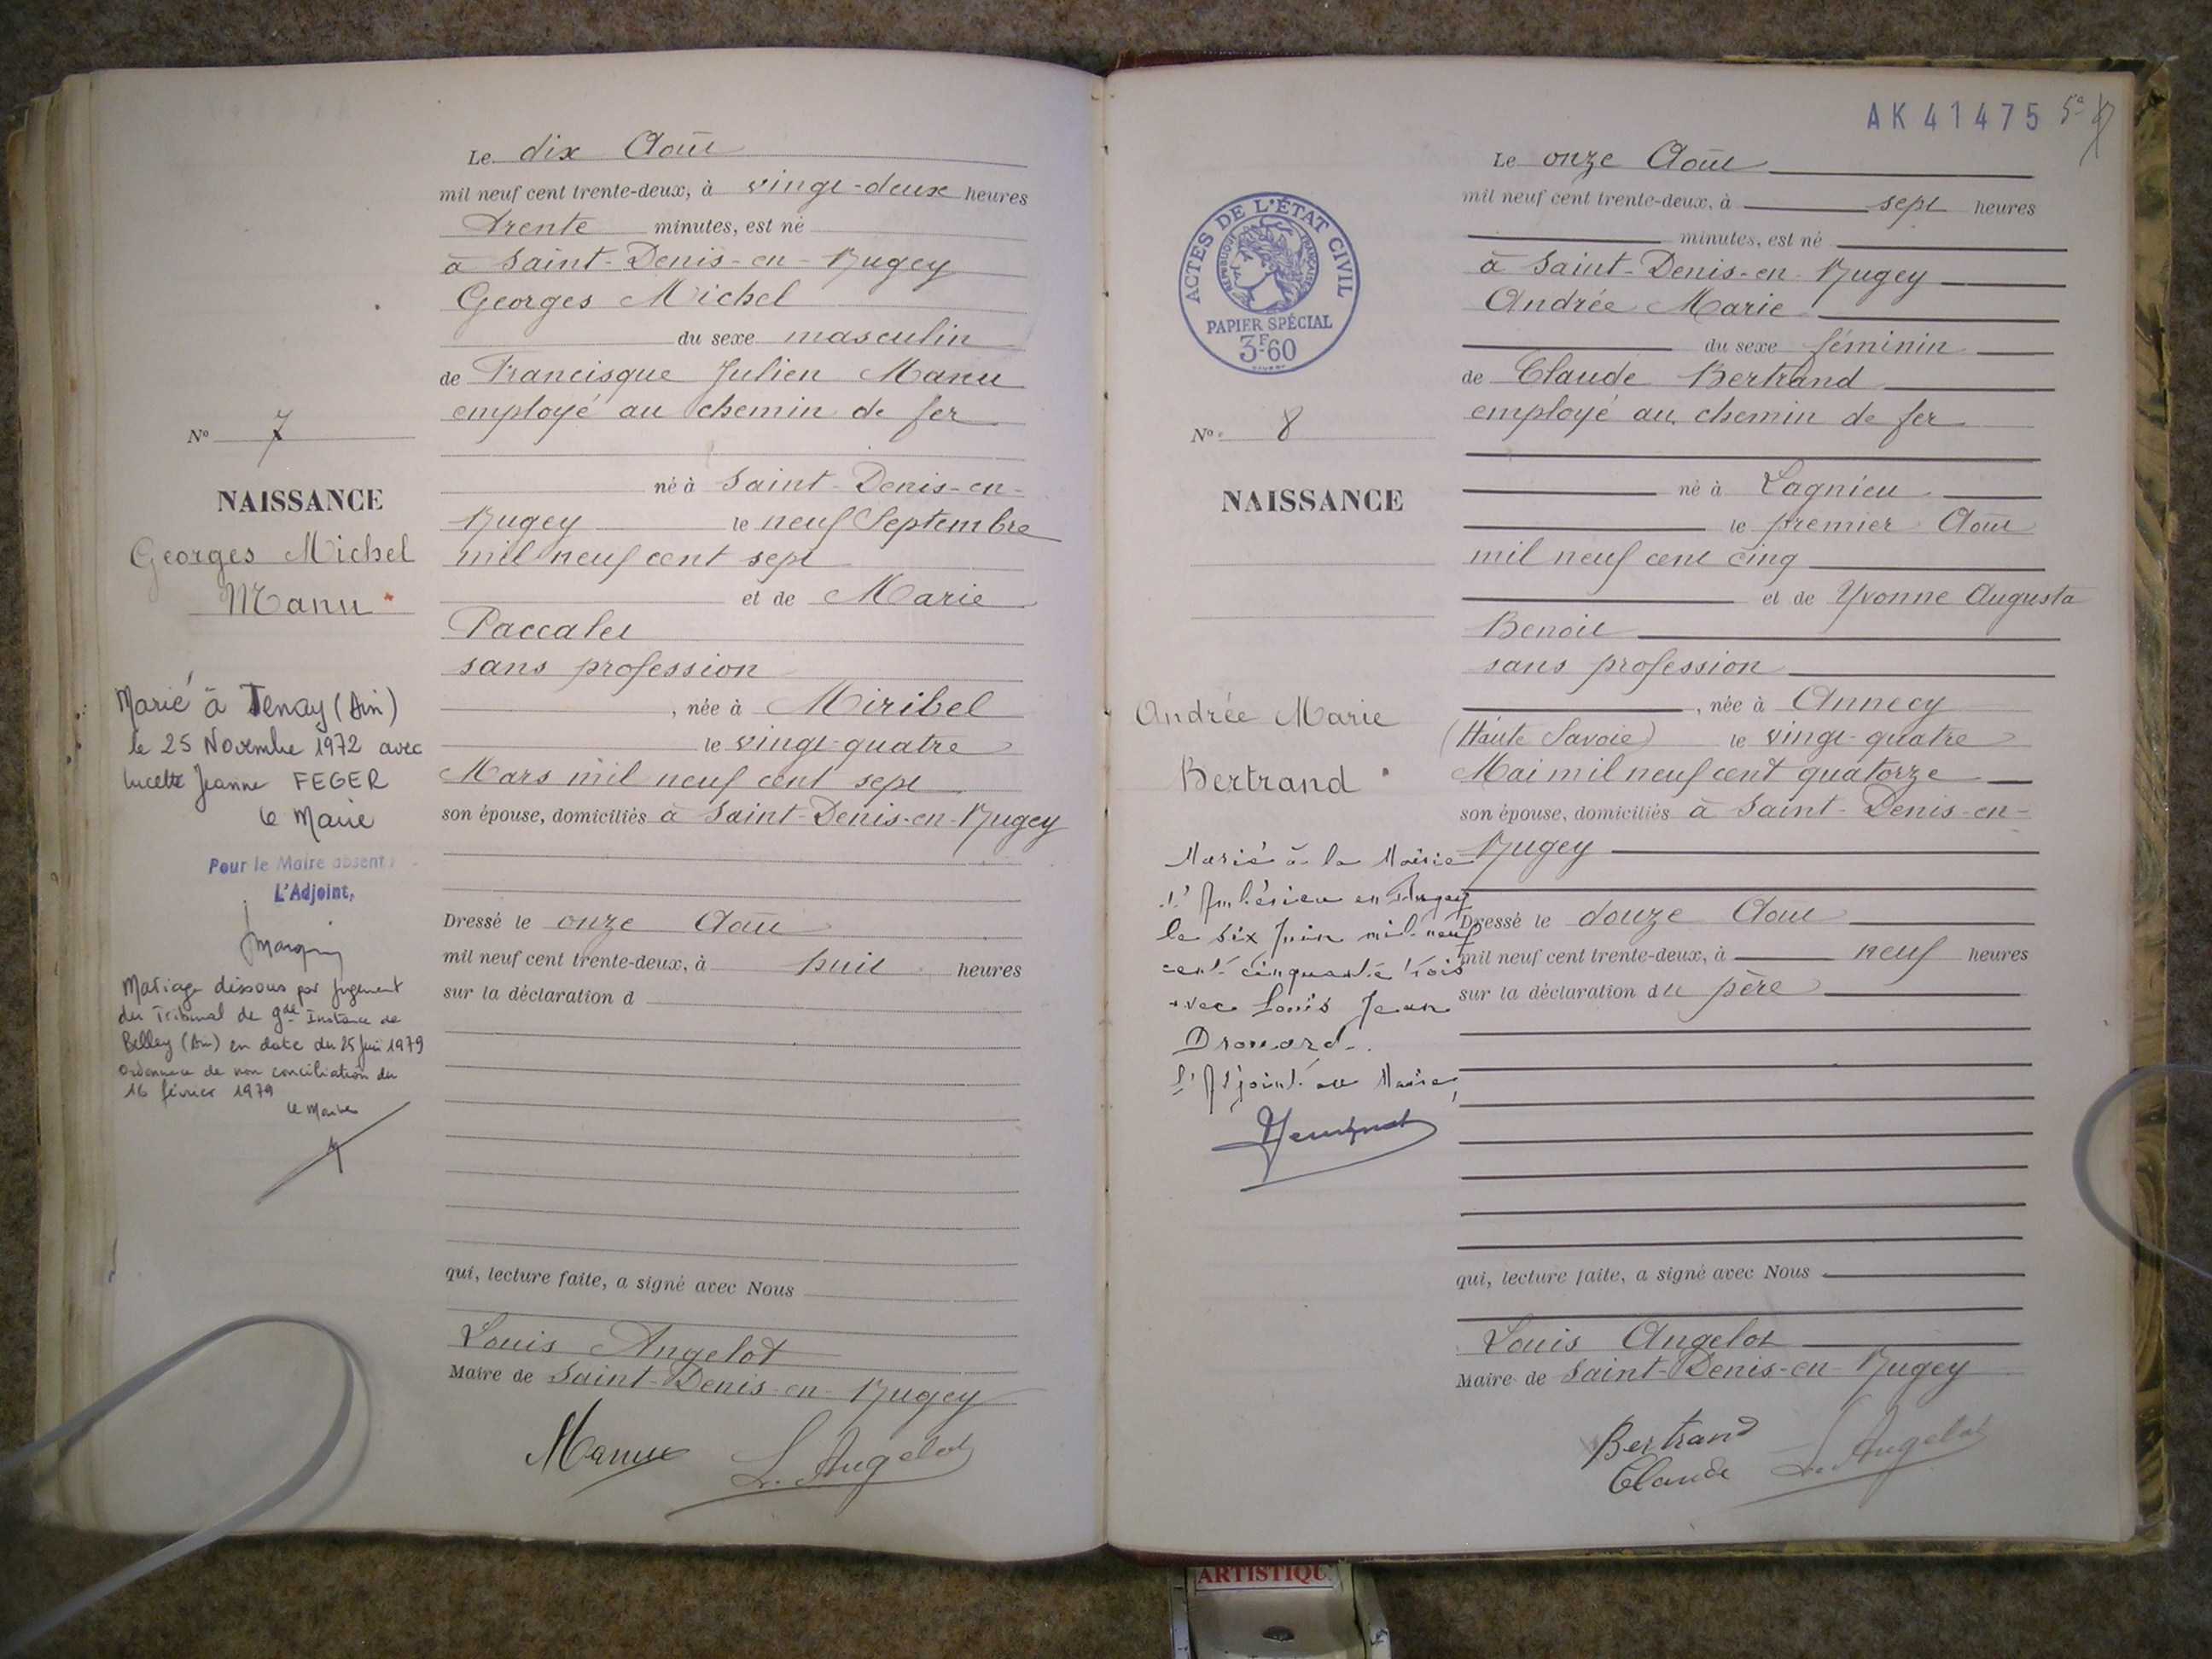 Le dix Août
mil neuf cent trente-deux, à vingt-deux heures
trente minutes, est né
à Saint-Denis-en-Bugey
Georges Michel
du sexe masculin
de Francisque Julien Manu
employé au chemin de fer
né à Saint-Denis-en-
Bugey le neuf Septembre
mil neuf cent sept
et de Marie
Paccalet
sans profession
, née à Miribel
le vingt-quatre
Mars mil neuf cent sept
son épouse, domiciliés à Saint-Denis-en-Bugey
Dressé le onze Août
mil neuf cent trente-deux, à huit heures
sur la déclaration d
qui, lecture faite, a signé avec Nous
Louis Angelot
Maire de Saint-Denis-en-Bugey
Manu L. Angelot
N° 7
NAISSANCE
Georges Michel
Manu
Marié à Tenay (Ain)
le 25 Novembre 1972 avec
Lucette Jeanne FEGER
Le Maire
Pour le Maire absent
L'Adjoint,
Mariage dissous par jugement
du Tribunal de gde Instance de
Belley (Ain) en date du 25 Juin 1979
Ordonnance de non conciliation du
16 février 1979
Le Maire
AK 41475
ACTES DE L'ÉTAT CIVIL
RÉPUBLIQUE FRANÇAISE
PAPIER SPÉCIAL
3F.60
N° 8
NAISSANCE
Andrée Marie
Bertrand
Marié à la Mairie
d'Ambérieu en Bugey
le six Juin mil neuf
cent cinquante trois
avec Louis Jean
Drouard.
L'Adjoint au Maire,
Le onze Août
mil neuf cent trente-deux, à sept heures
minutes, est né
à Saint-Denis-en-Bugey
Andrée Marie
du sexe féminin
de Claude Bertrand
employé au chemin de fer
né à Lagnieu
le premier Août
mil neuf cent cinq
et de Yvonne Augusta
Benoit
sans profession
, née à Annecy
(Haute Savoie) le vingt-quatre
Mai mil neuf cent quatorze
son épouse, domiciliés à Saint-Denis-en-
Bugey
Dressé le douze Août
mil neuf cent trente-deux, à neuf heures
sur la déclaration du père
qui, lecture faite, a signé avec Nous
Louis Angelot
Maire de Saint-Denis-en-Bugey
Bertrand
Claude L. Angelot
ARTISTIQU